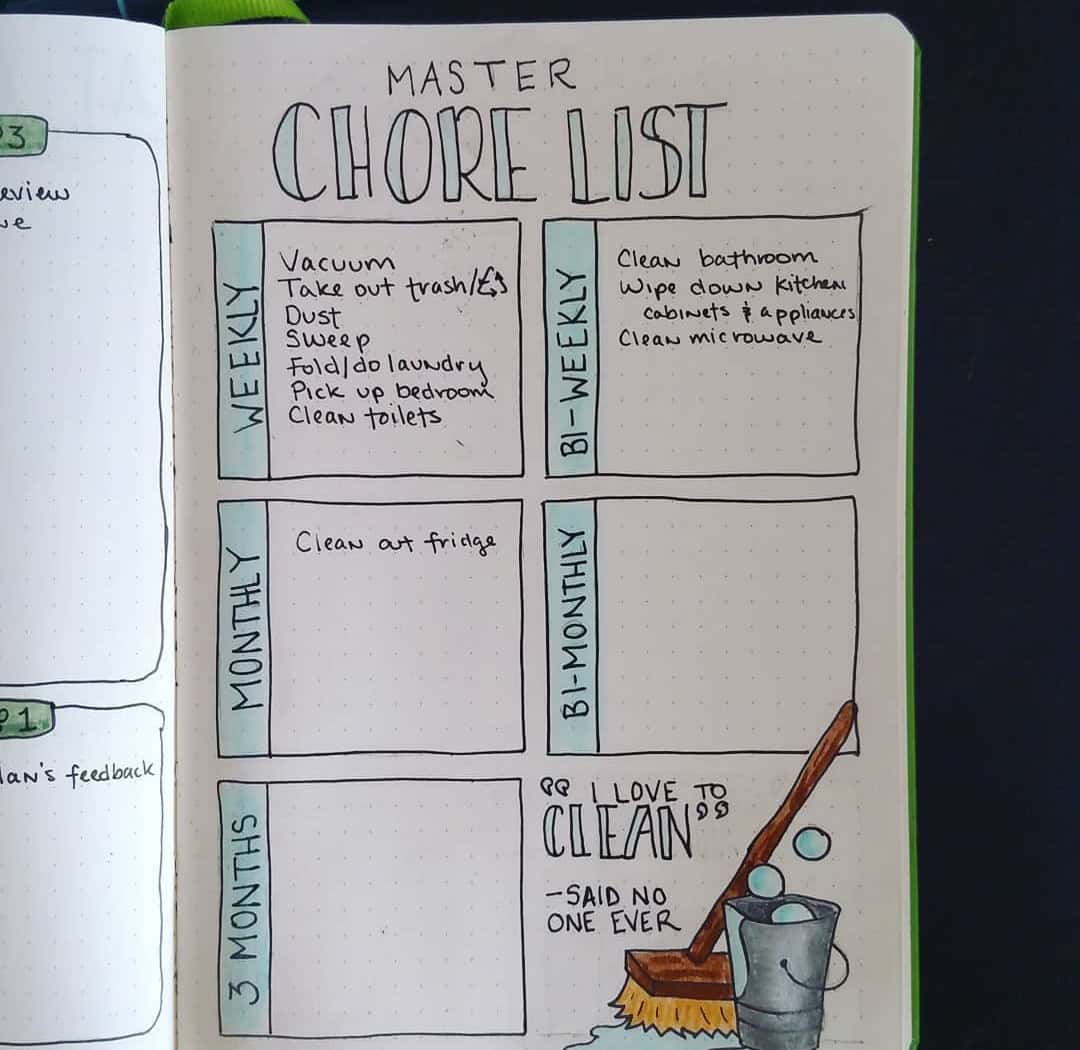 MASTER
CHORE LIST
WEEKLY
Vacuum
Take out trash/
Dust
Sweep
Fold/do laundry
Pick up bedroom
Clean toilets
BI-WEEKLY
Clean bathroom
Wipe down kitchen
cabinets & appliances
Clean microwave
MONTHLY
Clean out fridge
BI-MONTHLY
3 MONTHS
"I LOVE TO
CLEAN"
-SAID NO
ONE EVER
3
eview
1
feedback